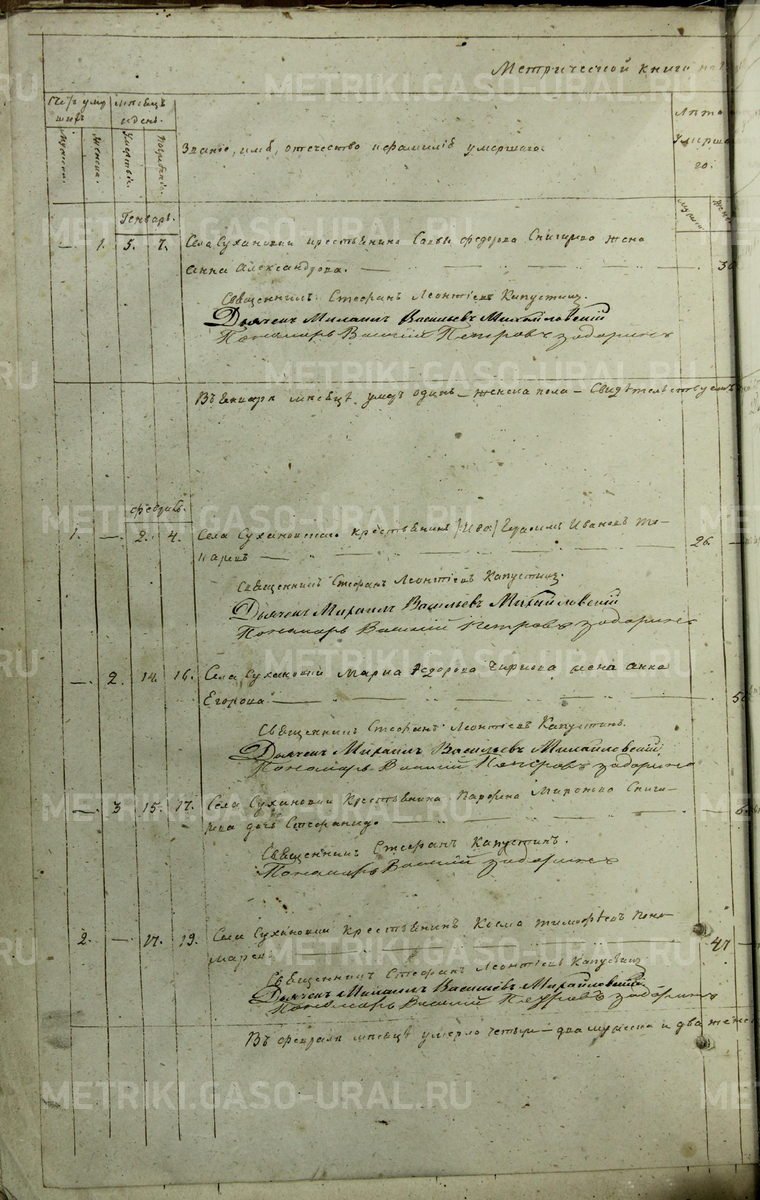 Метрической книги на
Счетъ умер
шихъ
мѣсяцъ
и день.
Мужеск.
Женска.
Умертвія.
Погребенія.
Званіе, имя, отечество и фамилія умершаго.
Лѣта
Умерша
го.
Мужеск
Женск
Генварь.
— 1. 5. 7. Села Сухановки крестьянина Саввы Федорова Снигирева жена
Анна Александрова. —
Священникъ Стефанъ Леонтіевъ Капустинъ.
Дьячекъ Михаилъ Васильевъ Михайловский
Пономарь Василій Петровъ Задоринъ
Въ Генварѣ мѣсяцѣ умеръ одинъ — женска пола — Свидѣтельствуемъ
Февраль.
1. — 2. 4. Села Сухановскаго крестьянинъ Герасимъ Ивановъ То-
каревъ — 26. —
Священникъ Стефанъ Леонтіевъ Капустинъ.
Дьячекъ Михаилъ Васильевъ Михайловский
Пономарь Василій Петровъ Задоринъ
— 2 14. 16. Села Сухановки Марка Федорова жена Анна
Егорова. —
Священникъ Стефанъ Леонтіевъ Капустинъ.
Дьячекъ Михаилъ Васильевъ Михайловский
Пономарь Василій Петровъ Задоринъ
— 3 15. 17. Села Сухановки Крестьянина Снига-
рева дочь Стефанида. — 6.
Священникъ Стефанъ Капустинъ.
Пономарь Василій Задоринъ
2. — 17. 19. Села Сухановки Крестьянинъ Косма Тимофѣевъ Поно-
маревъ — 47 —
Священникъ Стефанъ Леонтіевъ Капустинъ
Дьячекъ Михаилъ Васильевъ Михайловский
Пономарь Василій Петровъ Задоринъ
Въ Февралѣ мѣсяцѣ умерло четыре — два мужеска и два женск
METRIKI.GASO-URAL.RU